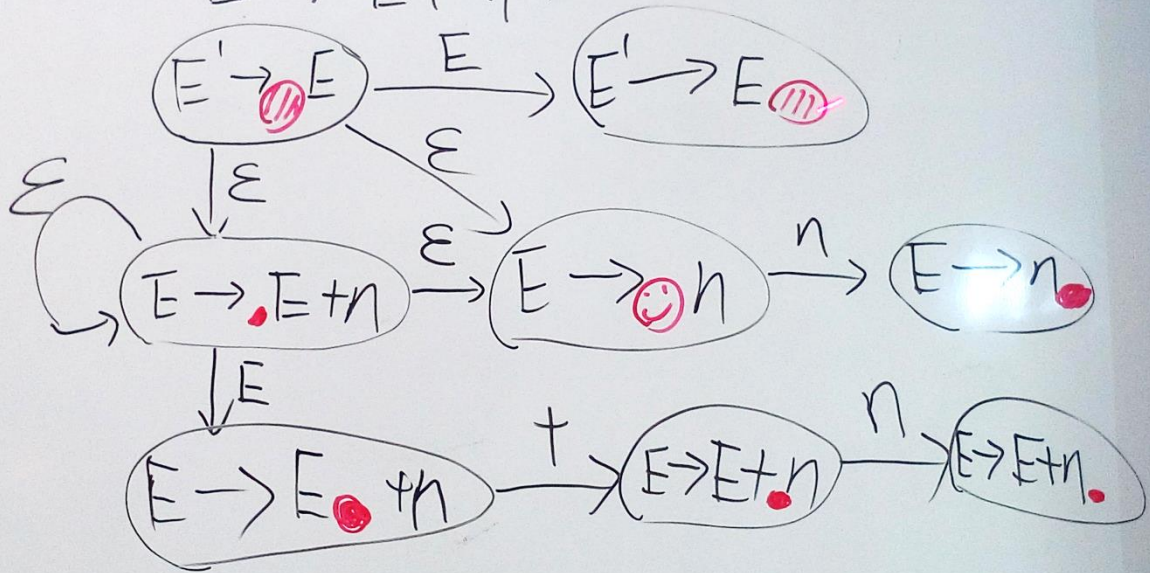 E' → . E E E' → E .
ε ε
ε
E → . E + n ε E → . n n E → n .
E
E → E . + n + E → E + . n n E → E + n .